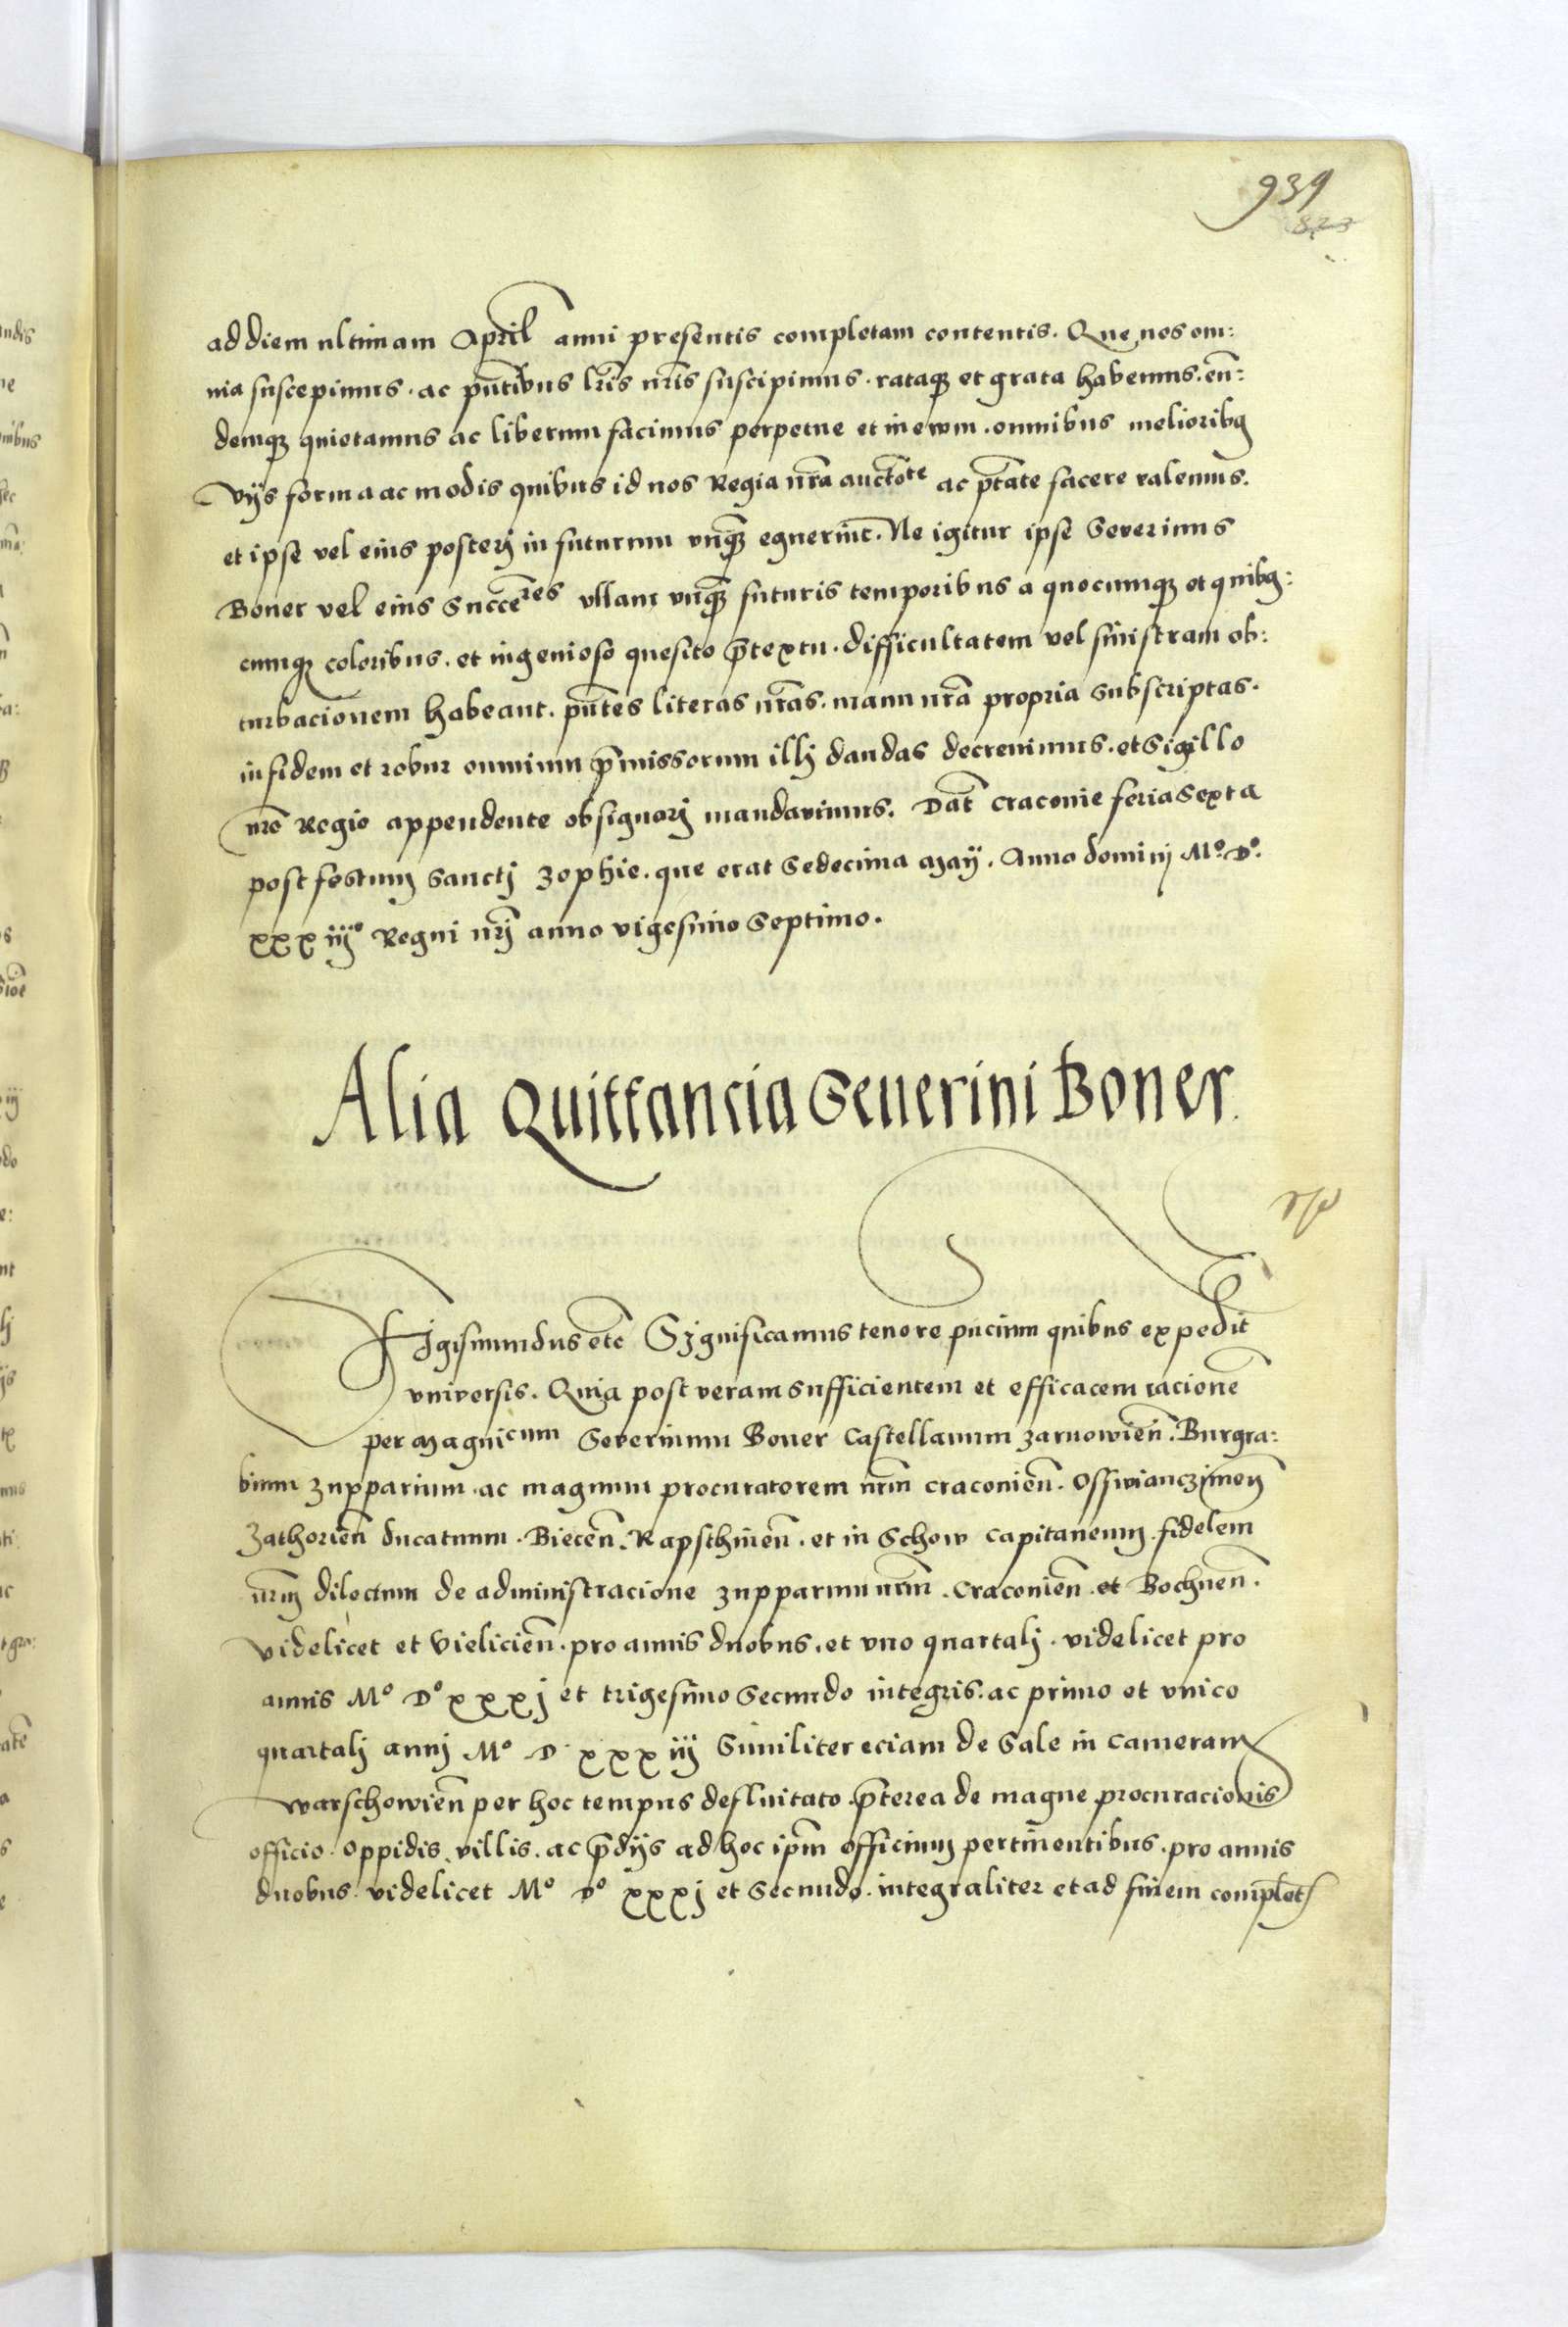 939
823
ad diem ultimam April anni presentis completam contentis. Que nos om:
nia suscepimus. ac pñtibus lr̃is nr̃is suscipimus. rataqȝ et grata habemus. eũ:
demqȝ quietamus ac liberum facimus perpetue et in ewm. omnibus melioribꝫ
vijs forma ac modis quibus id nos Regia nr̃a auctõte ac ptãte facere valemus.
et ipse vel eius posterj in futurum vnqȝ eguerint. Ne igitur ipse Severinus
Boner vel eius Succẽres vllam vnqȝ futuris temporibus a quocumqȝ et quibꝫ:
cumqȝ coloribus. et ingenioso quesito p̃textu. difficultatem vel sinistram ob:
turbacionem habeant. pñtes literas nr̃as. manu nr̃a propria subscriptas.
in fidem et robur omnium p̃missorum illj dandas decrevimus. et Sigillo
nr̃o Regio appendente obsignarj mandavimus. Dat̃ Cracovie feria Sexta
post festum Sanctj Zophie. que erat Sedecima Maij. Anno dominj Mº. Dº.
xxxiijº Regni nr̃j anno vigesimo Septimo.
Alia Quittancia Severini Boner.
Sigismundus etc̃ Significamus tenore pñcium quibus expedit
vniversis. Quia post veram sufficientem et efficacem racionẽ
per Magnicum Severinum Boner Castellanum Zarnowieñ. Burgra:
bium Zupparium. ac magnum procuratorem nr̃m Cracovieñ. Osswianczimeñ
Zathorieñ ducatuum. Bieceñ. Rapsthineñ. et in Schow Capitaneum. fidelem
nr̃m dilectum de administracione zupparum nr̃m. Cracovieñ. et Bochneñ.
videlicet et Vielicieñ. pro annis duobus. et vno quartalj. videlicet pro
annis Mº Dº xxxj et trigesimo Secundo integris. ac primo et vnico
quartalj annj Mº D xxxiij Similiter eciam de Sale in Cameram
warschowieñ per hoc tempus defluitato. p̃terea de magne procuracionis
officio. oppidis. villis. ac p̃dijs ad hoc ipm̃ officium pertinentibus. pro annis
duobus. videlicet Mº Dº xxxj et Secundo. integraliter et ad finem complet